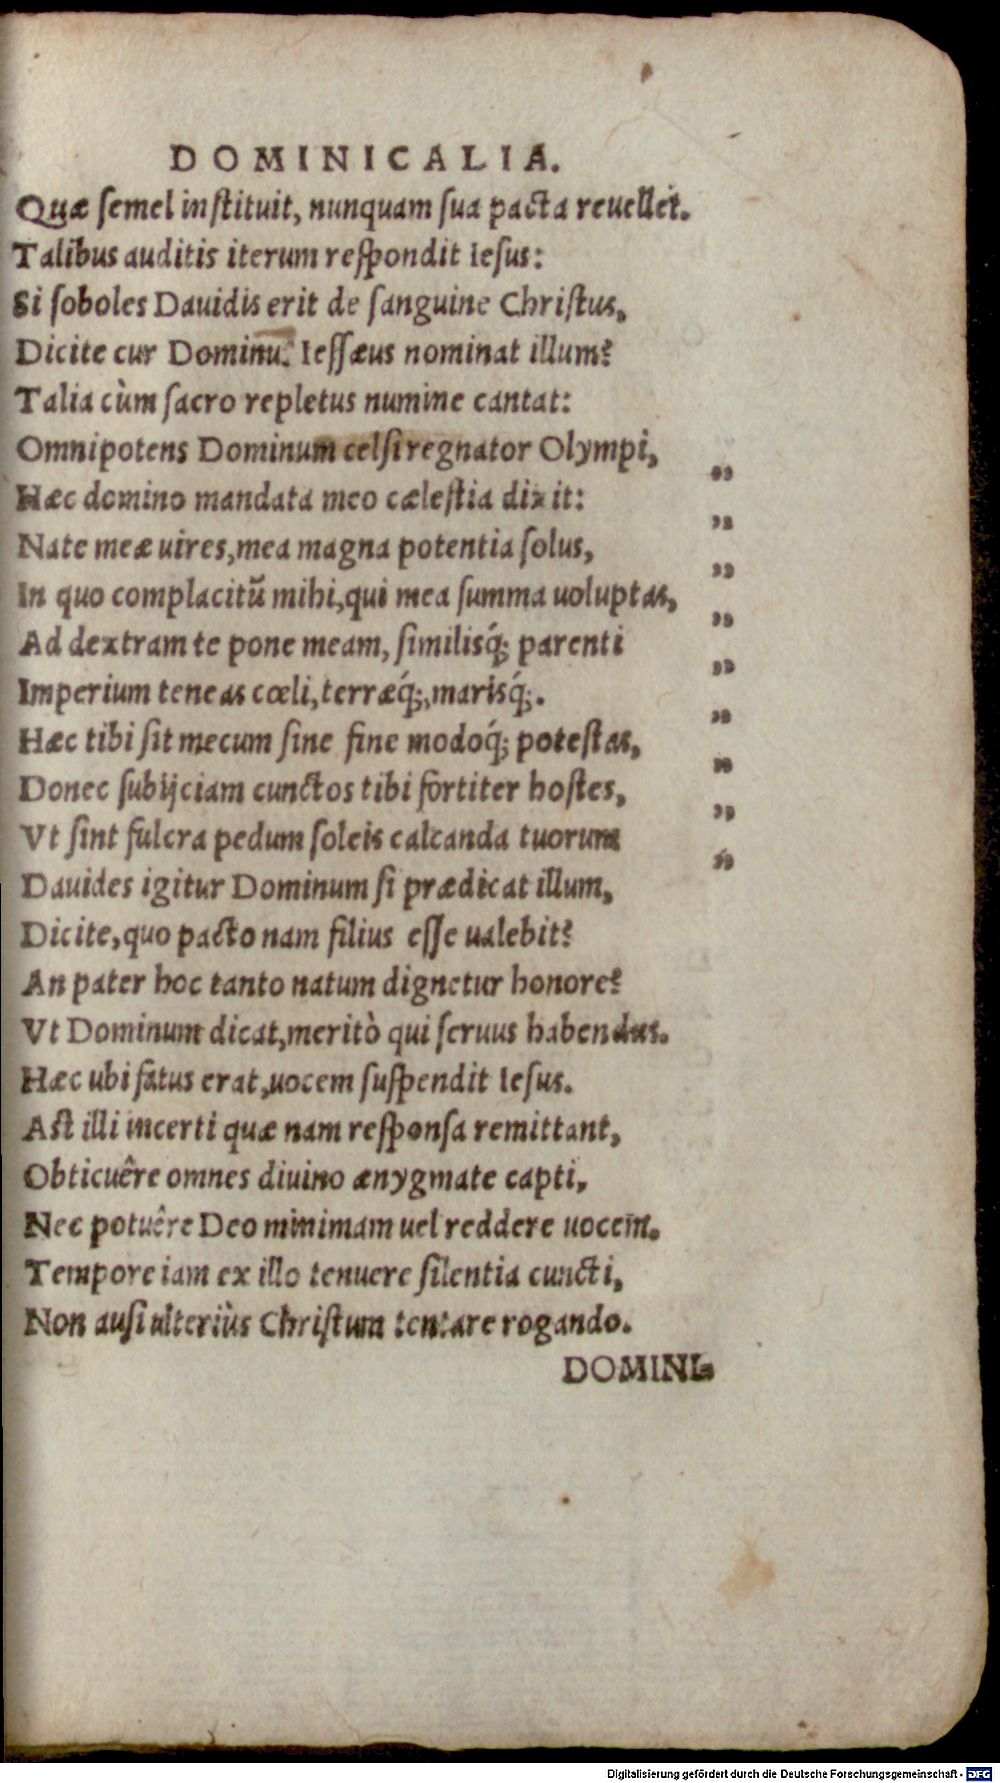 DOMINICALIA.
Quæ semel instituit, nunquam sua pacta reuellet.
Talibus auditis iterum respondit Iesus:
Si soboles Dauidis erit de sanguine Christus,
Dicite cur Dominū. Iessæus nominat illum?
Talia cùm sacro repletus numine cantat:
Omnipotens Dominum celsi regnator Olympi, „
Hæc domino mandata meo cælestia dixit: „
Nate meæ uires, mea magna potentia solus, „
In quo complacitū mihi, qui mea summa uoluptas, „
Ad dextram te pone meam, similisq́; parenti „
Imperium teneas cœli, terræq́;, marisq́;. „
Hæc tibi sit mecum sine fine modoq́; potestas, „
Donec subijciam cunctos tibi fortiter hostes, „
Vt sint fulcra pedum soleis calcanda tuorum „
Dauides igitur Dominum si prædicat illum,
Dicite, quo pacto nam filius esse ualebit?
An pater hoc tanto natum dignetur honore?
Vt Dominum dicat, meritò qui seruus habendus.
Hæc ubi fatus erat, uocem suspendit Iesus.
Ast illi incerti quæ nam responsa remittant,
Obticuêre omnes diuino ænygmate capti,
Nec potuêre Deo minimam uel reddere uocem.
Tempore iam ex illo tenuere silentia cuncti,
Non ausi ulteriùs Christum tentare rogando.
DOMINI-
Digitalisierung gefördert durch die Deutsche Forschungsgemeinschaft - DFG